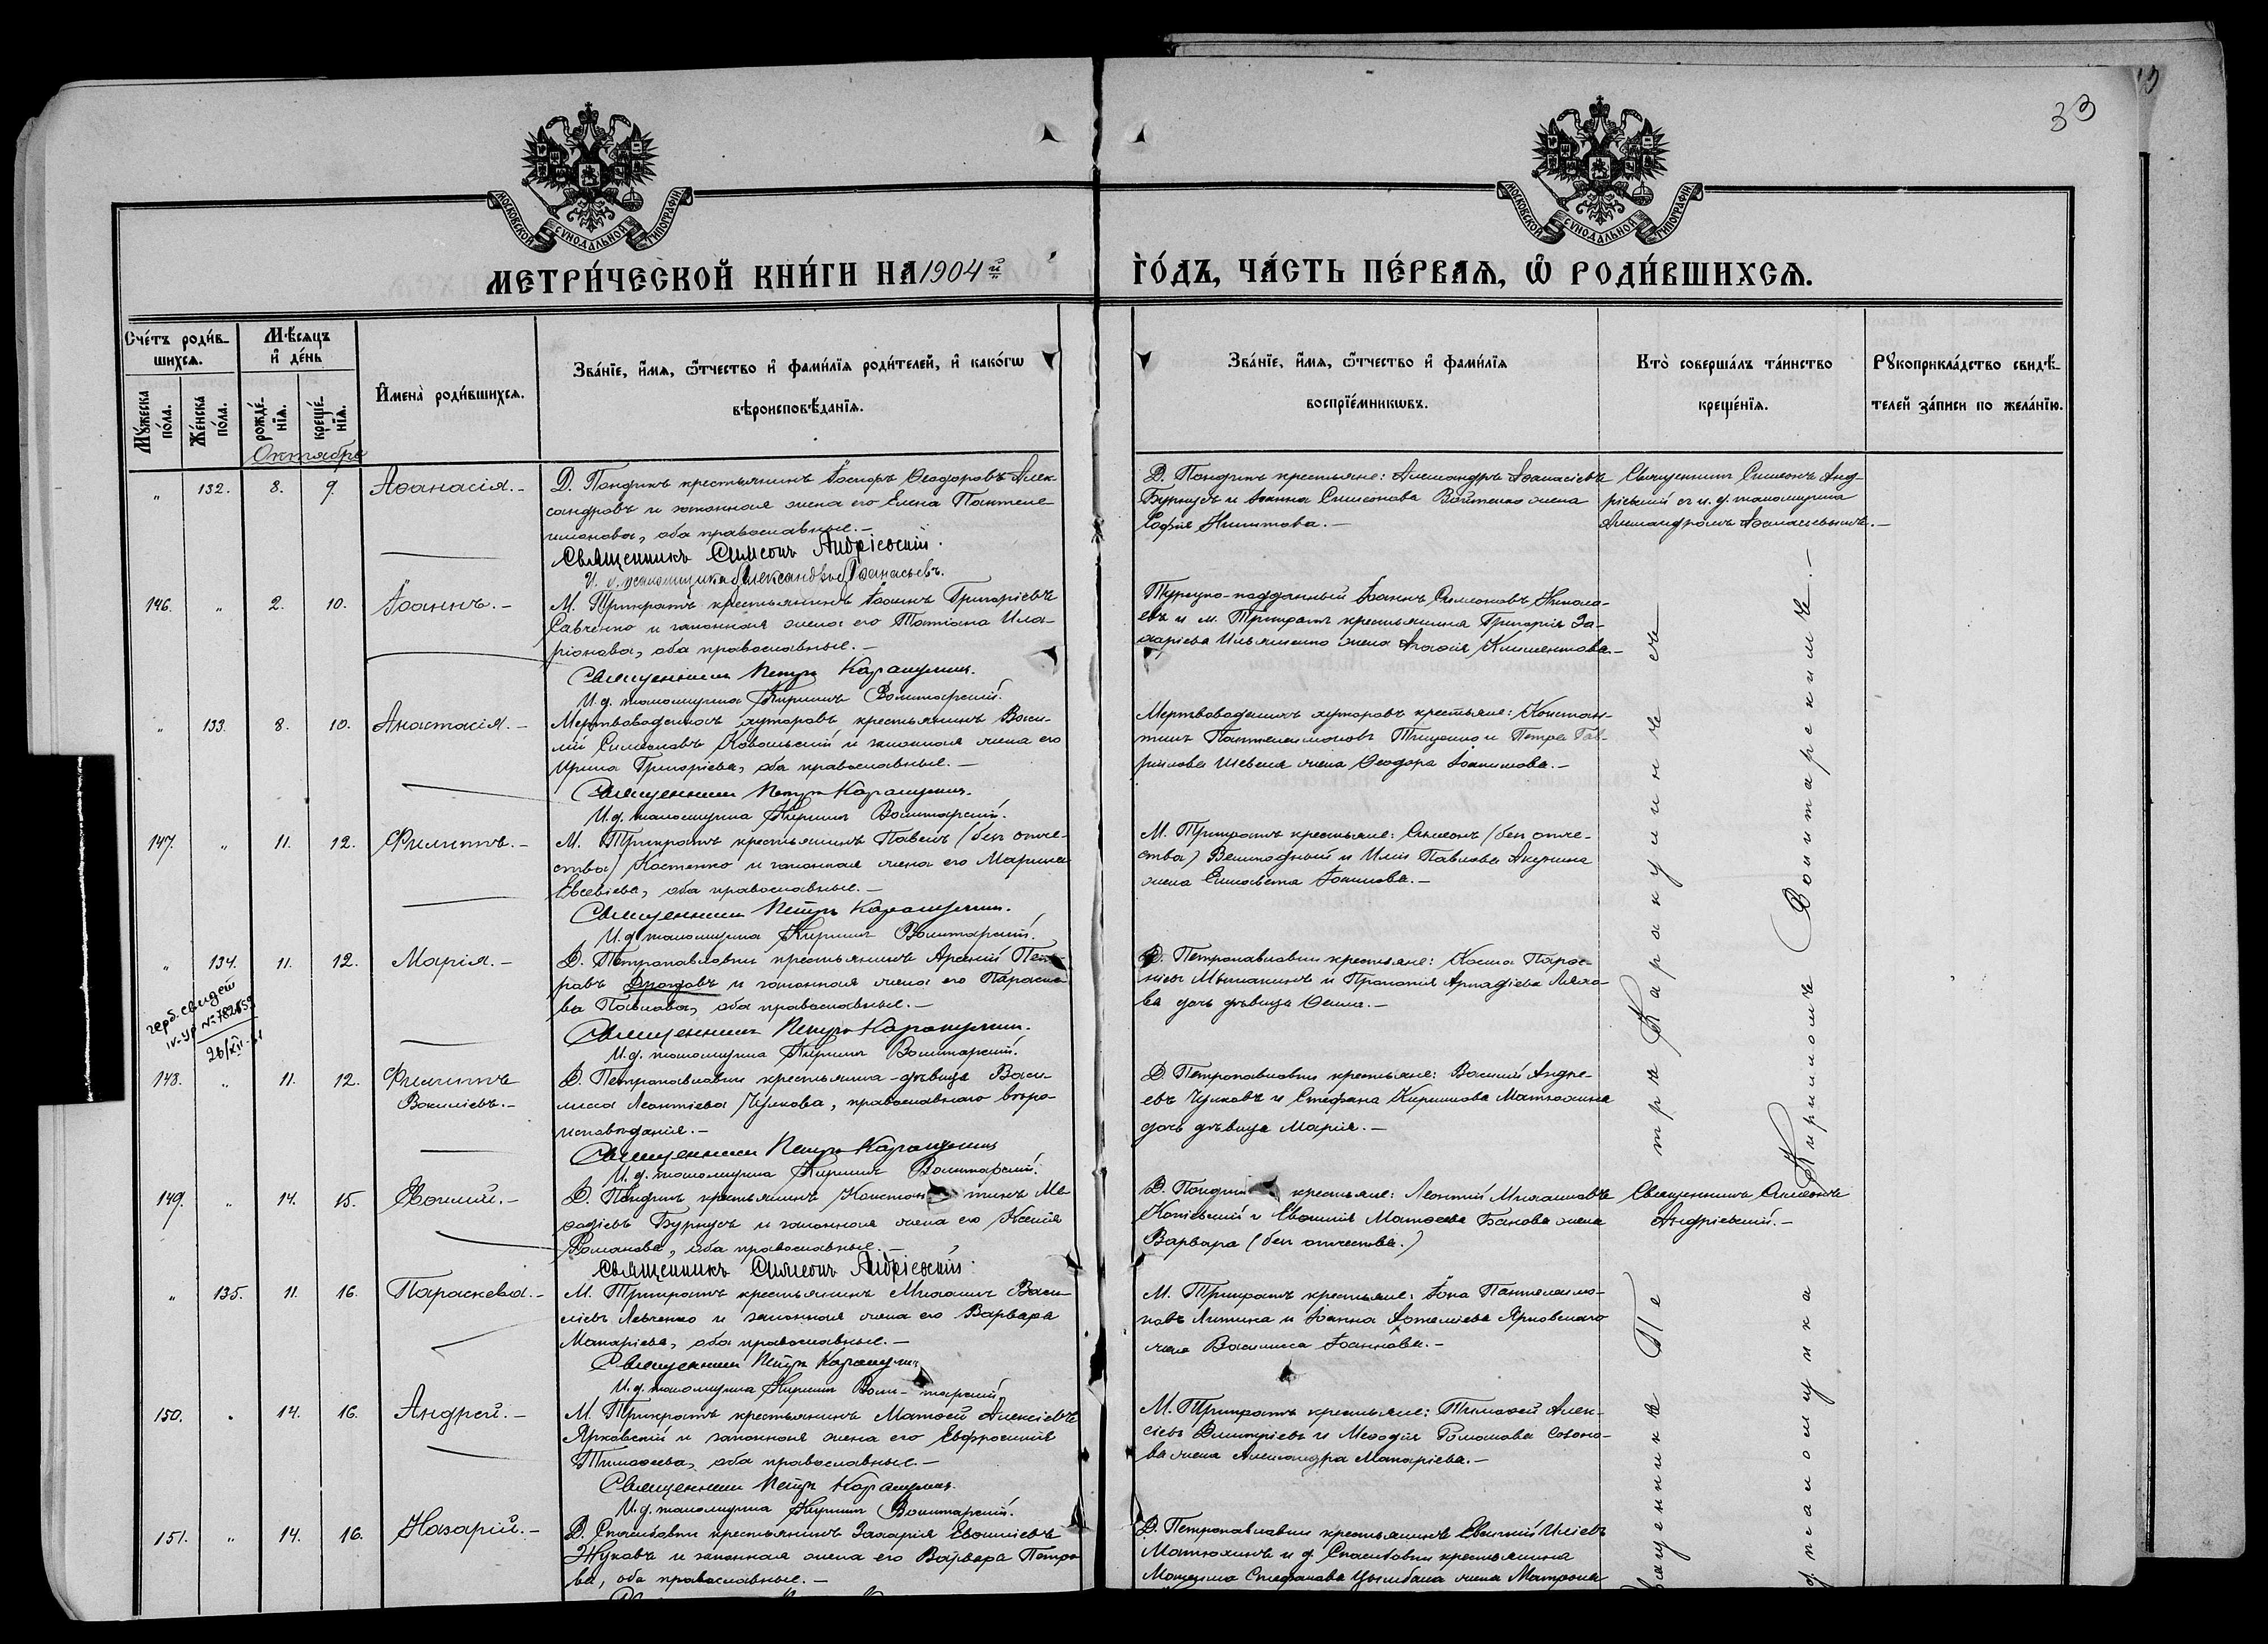 33
МОСКОВСКОЙ СУНОДАЛЬНОЙ ТИПОГРАФІИ
МОСКОВСКОЙ СУНОДАЛЬНОЙ ТИПОГРАФІИ
МЕТРИ́ЧЕСКОЙ КНИ́ГИ НА 1904й
ГО́ДЪ, ЧА́СТЬ ПЕ́РВАѦ, Ѡ҆ РОДИ́ВШИХСѦ.
Сче́тъ роди́в-
шихсѧ.
Мѣ́сѧцъ
и҆ де́нь
Мꙋ́жеска по́ла.
Же́нска по́ла.
рожде́-нїѧ.
креще́-нїѧ.
И҆мена̀ роди́вшихсѧ.
Зва́нїе, и҆́мѧ, ѻ҆́тчество и҆ фами́лїѧ роди́телей, и҆ како́гѡ
вѣроисповѣ́данїѧ.
Зва́нїе, и҆́мѧ, ѻ҆́тчество и҆ фами́лїѧ
воспрїе́мникѡвъ.
Кто̀ соверша́лъ та́инство
креще́нїѧ.
Рꙋкоприкла́дство свидѣ́-
телей за́писи по жела́нїю.
Октябрь
„ 132. 8. 9. Аѳанасія.-
Д. Пондикъ крестьянинъ Іосифъ Ѳеодоровъ Алек-
сандровъ и законная жена его Елена Пантеле-
имонова, оба православные.-
Священникъ Симеонъ Андріевскій.
И. д. псаломщика Александръ Аѳанасьевъ.
Д. Пондикъ крестьяне: Александръ Аѳанасіевъ
Бурнусъ и Іоанна Симеонова Войтенко жена
Софія Никитова.-
Священникъ Симеонъ Анд-
ріевскій съ и. д. псаломщика
Александромъ Аѳанасьевымъ.-
146. „ 2. 10. Іоаннъ.-
М. Трикратъ крестьянинъ Іоаннъ Григоріевъ
Савченко и законная жена его Татіана Ила-
ріонова, оба православные.-
Священникъ Петръ Каракулинъ.
И. д. псаломщика Кириллъ Волитарскій.
Турецко-подданный Іоаннъ Симеоновъ Никола-
евъ и м. Трикратъ крестьянина Григорія За-
харіева Ильяшенко жена Агафія Климентова.-
„ 133. 8. 10. Анастасія.-
Мертвоводскихъ хуторовъ крестьянинъ Васи-
лій Симеоновъ Ковальскій и законная жена его
Ирина Григоріева, оба православные.-
Священникъ Петръ Каракулинъ.
И. д. псаломщика Кириллъ Волитарскій.
Мертвоводскихъ хуторовъ крестьяне: Констан-
тинъ Пантелеимоновъ Тищенко и Петра Гав-
рилова Шевеля жена Ѳеодора Іоакимова.-
147. „ 11. 12. Филиппъ.-
М. Трикратъ крестьянинъ Павелъ (безъ отче-
ства) Костенко и законная жена его Марина
Евсевіева, оба православные.-
Священникъ Петръ Каракулинъ.
И. д. псаломщика Кириллъ Волитарскій.
М. Трикратъ крестьяне: Симеонъ (безъ отче-
ства) и Иліи Павлова Акулина
жена Елисавета Іоаннова.-
„ 134. 11. 12. Марія.-
герб. свидет
26/XII-
Д. Петропавловки крестьянинъ Арсеній Пет-
ровъ Дроздовъ и законная жена его Параске-
ва Павлова, оба православные.-
Священникъ Петръ Каракулинъ.
И. д. псаломщика Кириллъ Волитарскій.
Д. Петропавловки крестьяне: Косма
и Прокопія Аркадіева Ляхо-
ва дочь дѣвица Ѳекла.-
148. „ 11. 12. Филиппъ
Василіевъ.-
Д. Петропавловки крестьянка-дѣвица Васи-
лисса Леонтіева Чулкова, православнаго вѣро-
исповѣданія.-
Священникъ Петръ Каракулинъ
И. д. псаломщика Кириллъ Волитарскій.
Д. Петропавловки крестьяне: Василій Андре-
евъ Чулковъ и Стефана Кириллова Матюхина
дочь дѣвица Марія.-
149. „ 14. 15. Евѳимій.-
Д. Пондикъ крестьянинъ Константинъ Ме-
ѳодіевъ Бурнусъ и законная жена его Ксенія
Романова, оба православные.-
Священникъ Симеонъ Андріевскій.
Д. Пондикъ крестьяне: Леонтій Михаиловъ
и Евѳимія Матѳеева Банова жена
Варвара (безъ отчества.)
Священникъ Симеонъ
Андріевскій.-
„ 135. 11. 16. Параскева.-
М. Трикратъ крестьянинъ Михаилъ Васи-
ліевъ Левченко и законная жена его Варвара
Макаріева, оба православные.-
Священникъ Петръ Каракулинъ
И. д. псаломщика Кириллъ Волитарскій.
М. Трикратъ крестьяне: Іона Пантелеимо-
новъ Литвина и Іоанна Артеміева Ярковскаго
жена Василиса Іоаннова.-
150. „ 14. 16. Андрей.-
М. Трикратъ крестьянинъ Матѳей Алексіевъ
Ярковскій и законная жена его Евфросинія
Тимоѳеева, оба православные.-
Священникъ Петръ Каракулинъ.
И. д. псаломщика Кириллъ Волитарскій.
М. Трикратъ крестьяне: Тимоѳей Алек-
сіевъ Димитріевъ и Меѳодія Романова Созоно-
ва жена Александра Макаріева.-
151. „ 14. 16. Назарій.-
Д. Спасибовки крестьянинъ Захарія Евѳиміевъ
Жуковъ и законная жена его Варвара Петро-
ва, оба православные.-
Д. Петропавловки крестьянинъ Евѳимій Иліевъ
Матюхинъ и д. Спасибовки крестьянина
Максима Стефанова Цымбала жена Матрона
Священникъ Петръ Каракулинъ съ
и. д. псаломщика Кирилломъ Волитарскимъ.-